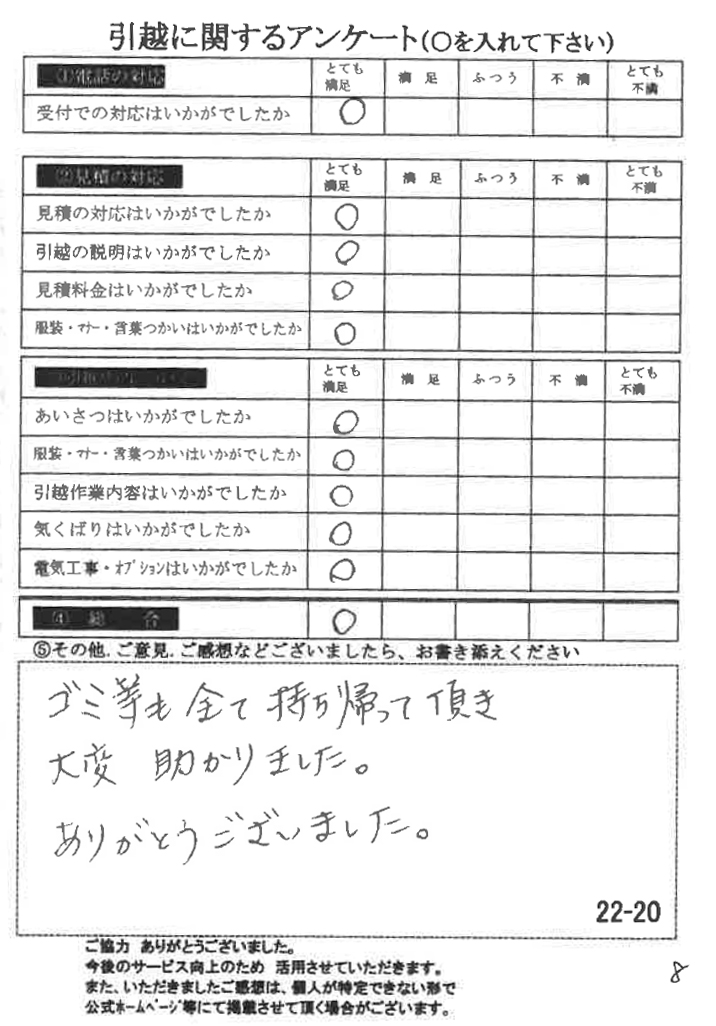 引越に関するアンケート(○を入れて下さい)
①電話の対応 とても満足 満足 ふつう 不満 とても不満
受付での対応はいかがでしたか ○
②見積の対応 とても満足 満足 ふつう 不満 とても不満
見積の対応はいかがでしたか ○
引越の説明はいかがでしたか ○
見積料金はいかがでしたか ○
服装・マナー・言葉つかいはいかがでしたか ○
とても満足 満足 ふつう 不満 とても不満
あいさつはいかがでしたか ○
服装・マナー・言葉つかいはいかがでしたか ○
引越作業内容はいかがでしたか ○
気くばりはいかがでしたか ○
電気工事・オプションはいかがでしたか ○
④総合 ○
⑤その他.ご意見.ご感想などございましたら、お書き添えください
ゴミ等も全て持ち帰って頂き
大変 助かりました。
ありがとうございました。
22-20
ご協力 ありがとうございました。
今後のサービス向上のため 活用させていただきます。
また、いただきましたご感想は、個人が特定できない形で
公式ホームページ等にて掲載させて頂く場合がございます。
8